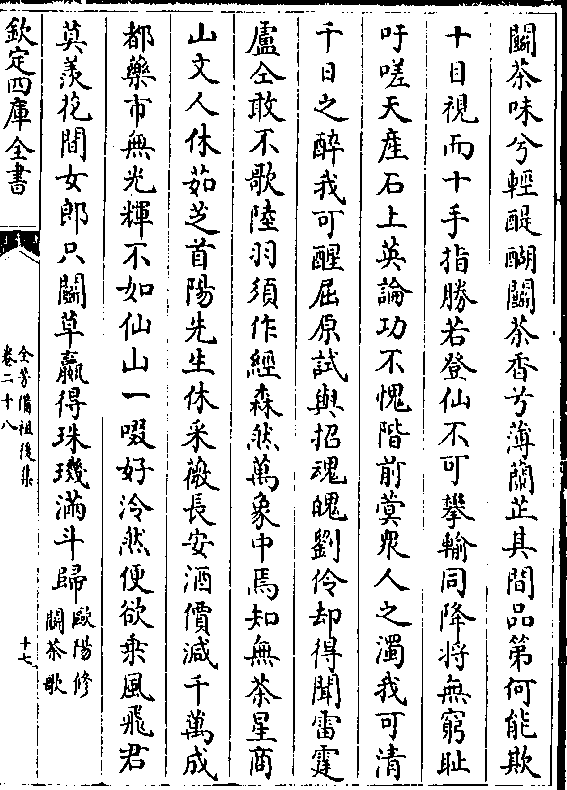 鬬茶味兮輕醍醐鬬茶香兮薄蘭芷其間品第何能欺
十目視而十手指勝若登仙不可攀輸同降將無窮耻
吁嗟天産石上英論功不愧階前蓂衆人之濁我可清
千日之醉我可醒屈原試與招魂魄劉伶却得聞雷霆
盧仝敢不歌陸羽須作經森然萬象中焉知無茶星商
山文人休茹芝首陽先生休采薇長安酒價減千萬成
都藥市無光輝不如仙山一啜好泠然便欲乘風飛君
莫羨花間女郎只鬬草贏得珠璣滿斗歸歐陽修
鬬茶歌
欽定四庫全書
全芳備祖後集
卷二十八
十七